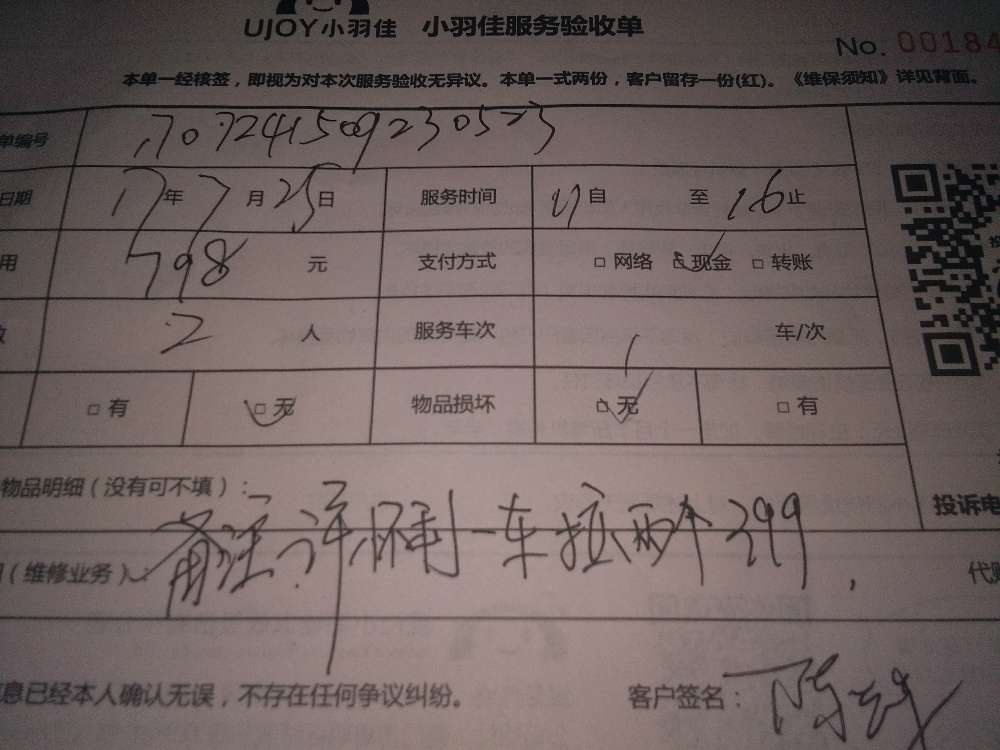 UJOY小羽佳 小羽佳服务验收单
No. 00184
本单一经核签，即视为对本次服务验收无异议。本单一式两份，客户留存一份(红)。《维保须知》详见背面。
单编号 1707241509230523
日期 17年7月25日 服务时间 自 至 16止
用 798 元 支付方式 □ 网络 □ 现金 □ 转账
数 2 人 服务车次 1 车/次
□ 有 □ 无 物品损坏 □ 无 □ 有
物品明细（没有可不填）：
投诉电
备注：一车拉两个399
（维修业务）：
代购
息已经本人确认无误，不存在任何争议纠纷。 客户签名：